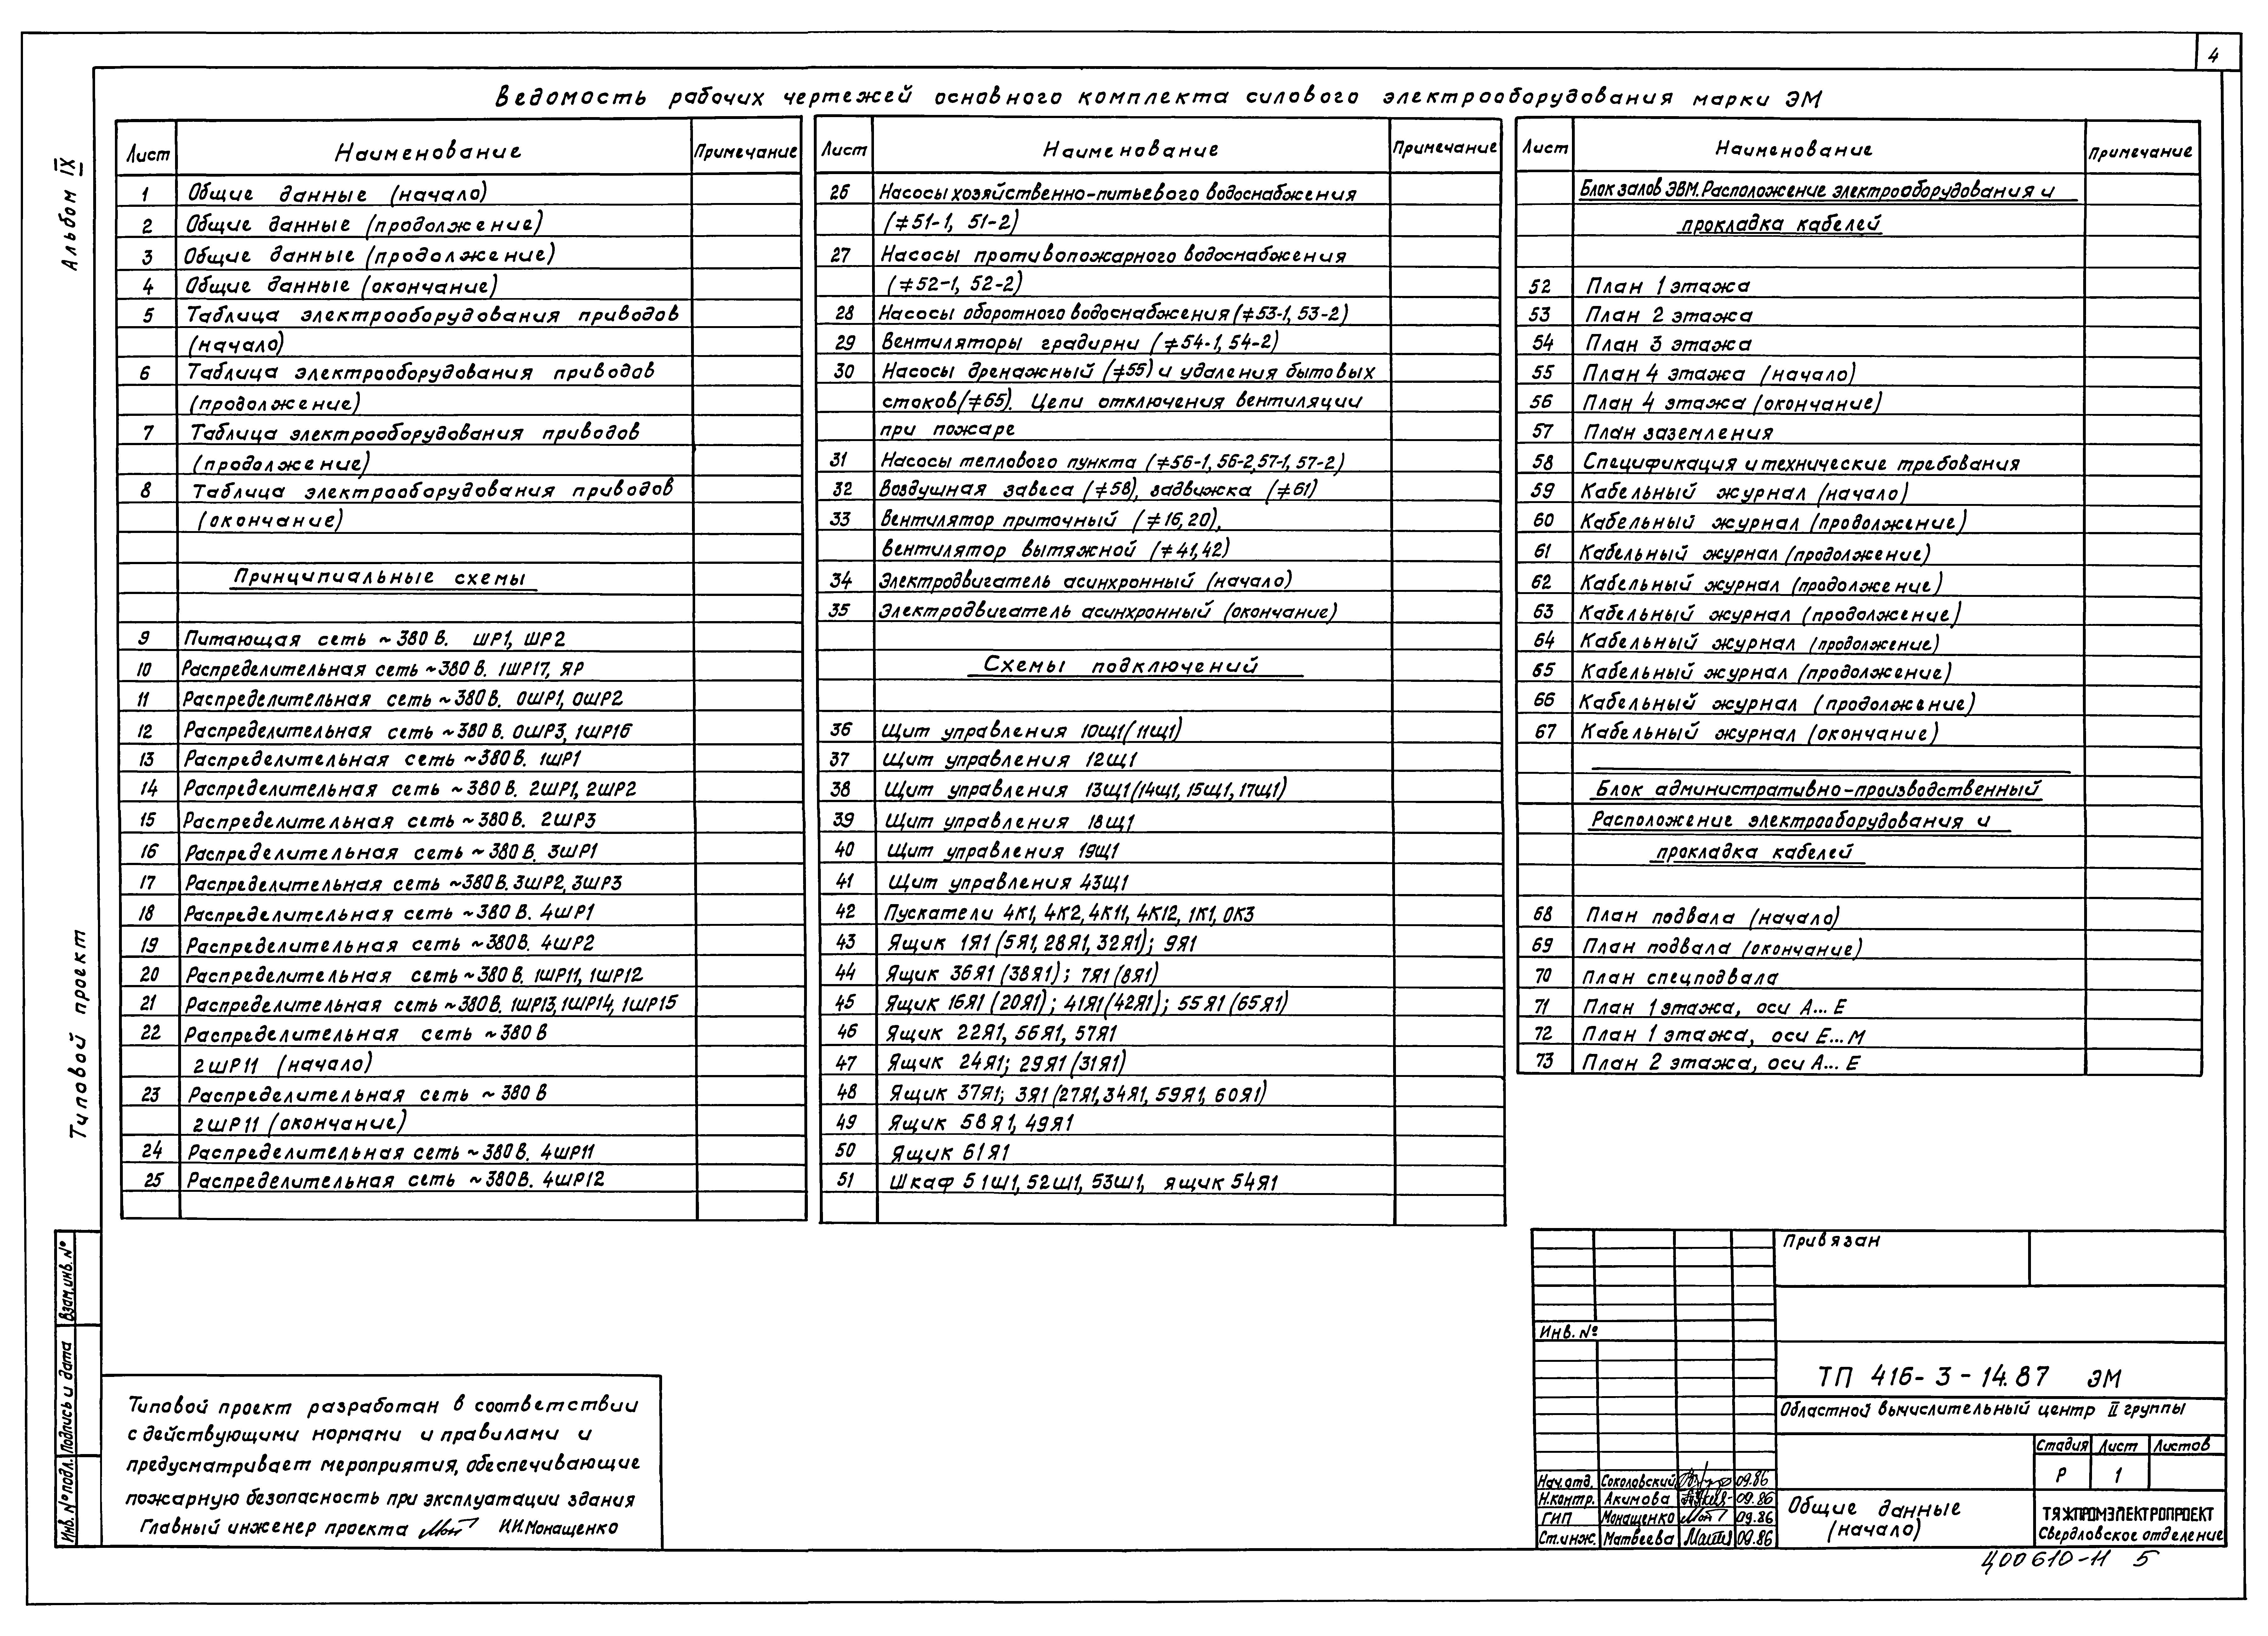 4
Альбом IX
Типовой проект
Ведомость рабочих чертежей основного комплекта силового электрооборудования марки ЭМ
Лист Наименование Примечание
1 Общие данные (начало)
2 Общие данные (продолжение)
3 Общие данные (продолжение)
4 Общие данные (окончание)
5 Таблица электрооборудования приводов
(начало)
6 Таблица электрооборудования приводов
(продолжение)
7 Таблица электрооборудования приводов
(продолжение)
8 Таблица электрооборудования приводов
(окончание)
Принципиальные схемы
9 Питающая сеть ~380 В. ШР1, ШР2
10 Распределительная сеть ~380 В. 1ШР17, ЯР
11 Распределительная сеть ~380 В. 0ШР1, 0ШР2
12 Распределительная сеть ~380 В. 0ШР3, 1ШР16
13 Распределительная сеть ~380 В. 1ШР1
14 Распределительная сеть ~380 В. 2ШР1, 2ШР2
15 Распределительная сеть ~380 В. 2ШР3
16 Распределительная сеть ~380 В. 3ШР1
17 Распределительная сеть ~380 В. 3ШР2, 3ШР3
18 Распределительная сеть ~380 В. 4ШР1
19 Распределительная сеть ~380 В. 4ШР2
20 Распределительная сеть ~380 В. 1ШР11, 1ШР12
21 Распределительная сеть ~380 В. 1ШР13, 1ШР14, 1ШР15
22 Распределительная сеть ~380 В
2ШР11 (начало)
23 Распределительная сеть ~380 В
2ШР11 (окончание)
24 Распределительная сеть ~380 В. 4ШР11
25 Распределительная сеть ~380 В. 4ШР12
Лист Наименование Примечание
26 Насосы хозяйственно-питьевого водоснабжения
(≠51-1, 51-2)
27 Насосы противопожарного водоснабжения
(≠52-1, 52-2)
28 Насосы оборотного водоснабжения (≠53-1, 53-2)
29 Вентиляторы градирни (≠54-1, 54-2)
30 Насосы дренажный (≠55) и удаления бытовых
стоков (≠65). Цепи отключения вентиляции
при пожаре
31 Насосы теплового пункта (≠56-1, 56-2, 57-1, 57-2)
32 Воздушная завеса (≠58), задвижка (≠61)
33 Вентилятор приточный (≠16, 20),
вентилятор вытяжной (≠41, 42)
34 Электродвигатель асинхронный (начало)
35 Электродвигатель асинхронный (окончание)
Схемы подключений
36 Щит управления 10Щ1 (11Щ1)
37 Щит управления 12Щ1
38 Щит управления 13Щ1 (14Щ1, 15Щ1, 17Щ1)
39 Щит управления 18Щ1
40 Щит управления 19Щ1
41 Щит управления 43Щ1
42 Пускатели 4К1, 4К2, 4К11, 4К12, 1К1, 0К3
43 Ящик 1Я1 (5Я1, 28Я1, 32Я1); 9Я1
44 Ящик 36Я1 (38Я1); 7Я1 (8Я1)
45 Ящик 16Я1 (20Я1); 41Я1 (42Я1); 55Я1 (65Я1)
46 Ящик 22Я1, 56Я1, 57Я1
47 Ящик 24Я1; 29Я1 (31Я1)
48 Ящик 37Я1; 3Я1 (27Я1, 34Я1, 59Я1, 60Я1)
49 Ящик 58Я1, 49Я1
50 Ящик 61Я1
51 Шкаф 51Ш1, 52Ш1, 53Ш1, ящик 54Я1
Лист Наименование Примечание
Блок залов ЭВМ. Расположение электрооборудования и
прокладка кабелей
52 План 1 этажа
53 План 2 этажа
54 План 3 этажа
55 План 4 этажа (начало)
56 План 4 этажа (окончание)
57 План заземления
58 Спецификация и технические требования
59 Кабельный журнал (начало)
60 Кабельный журнал (продолжение)
61 Кабельный журнал (продолжение)
62 Кабельный журнал (продолжение)
63 Кабельный журнал (продолжение)
64 Кабельный журнал (продолжение)
65 Кабельный журнал (продолжение)
66 Кабельный журнал (продолжение)
67 Кабельный журнал (окончание)
Блок административно-производственный
Расположение электрооборудования и
прокладка кабелей
68 План подвала (начало)
69 План подвала (окончание)
70 План спецподвала
71 План 1 этажа, оси А...Е
72 План 1 этажа, оси Е...М
73 План 2 этажа, оси А...Е
Взам. инв. №
Подпись и дата
Инв. № подл.
Типовой проект разработан в соответствии
с действующими нормами и правилами и
предусматривает мероприятия, обеспечивающие
пожарную безопасность при эксплуатации здания
Главный инженер проекта И.И. Монащенко
Привязан
Инв. №
ТП 416-3-14.87 ЭМ
Областной вычислительный центр II группы
Стадия Лист Листов
Р 1
Нач. отд. Соколовский 09.86
Н. контр. Акимова 09.86
ГИП Монащенко 09.86
Ст. инж. Матвеева 09.86
Общие данные
(начало)
ТЯЖПРОМЭЛЕКТРОПРОЕКТ
Свердловское отделение
Ц00610-11 5